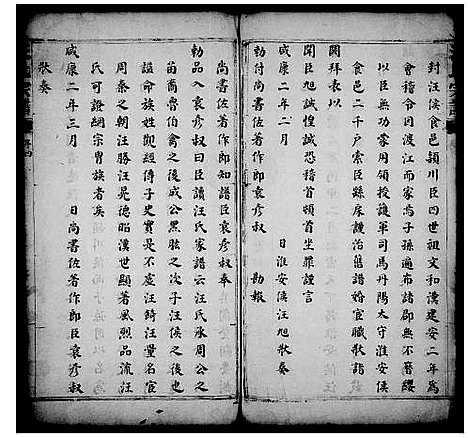 封汪侯食邑潁川臣四世祖文和漢建安二年為
會稽令因渡江而家焉子孫遍布諸郡無不簪纓
以臣無功蒙用領授護軍司馬丹陽太守淮安侯
食邑二千戶索臣縣序謹治舊譜婚宦職狀詣
闕拜表以
聞臣旭誠惶誠恐稽首頓首坐罪謹言
咸康二年二月　日淮安侯汪旭狀奏
勅付尚書佐著作郎袁彥叔　勘報
尚書佐著作郎知譜臣袁彥叔奉
勅品入袁彥叔曰臣讀汪氏家譜云汪氏承周公之
苗裔魯伯禽之後成公黑肱之次子汪侯之後也
謚命族姓觀經傳子史實是不虛汪錡汪量名宦
周秦之朝汪勝汪晃德昭漢世顯著風烈品流汪
氏可證綱宗胄族者矣
咸康二年三月　日尚書佐著作郎臣袁彥叔
狀奏